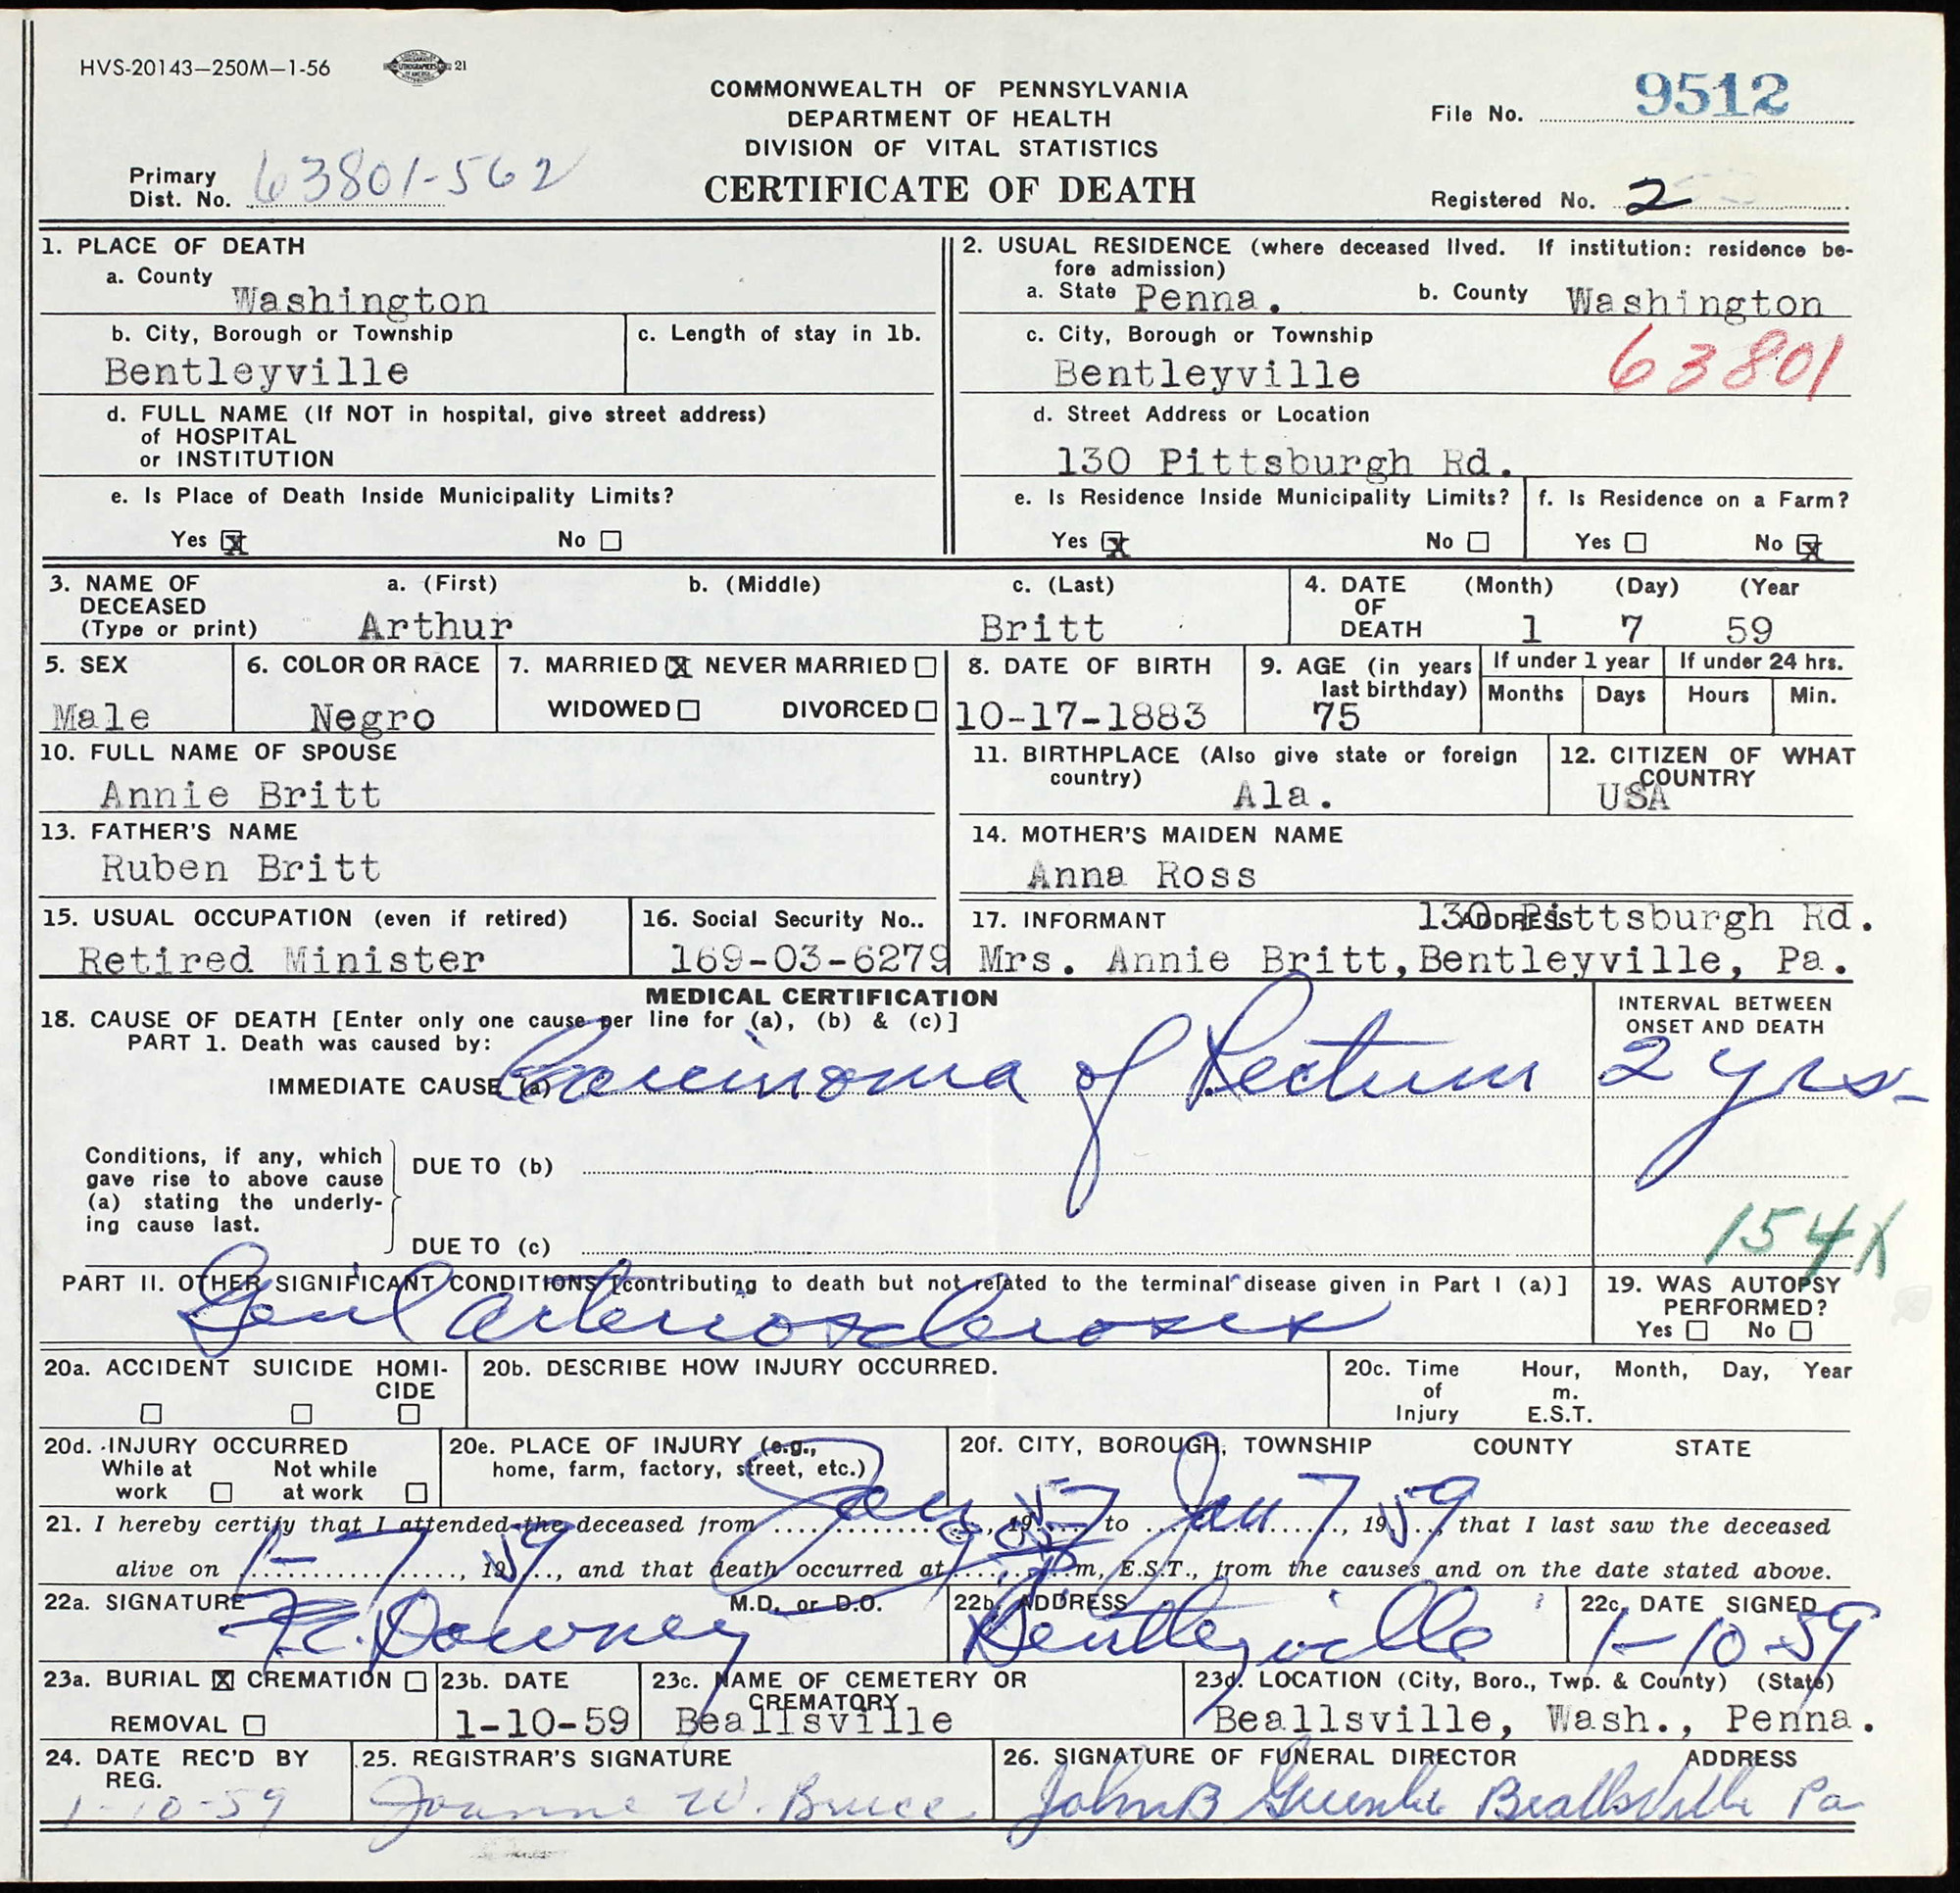 HVS-20143—250M—1-56 21
COMMONWEALTH OF PENNSYLVANIA
DEPARTMENT OF HEALTH
DIVISION OF VITAL STATISTICS
CERTIFICATE OF DEATH
File No. 9512
Primary
Dist. No. 63801-562
Registered No. 2
1. PLACE OF DEATH
a. County
Washington
b. City, Borough or Township
Bentleyville
c. Length of stay in 1b.
d. FULL NAME (If NOT in hospital, give street address)
of HOSPITAL
or INSTITUTION
e. Is Place of Death Inside Municipality Limits?
Yes X No
2. USUAL RESIDENCE (where deceased lived. If institution: residence be-
fore admission)
a. State Penna. b. County Washington
c. City, Borough or Township
Bentleyville 63801
d. Street Address or Location
130 Pittsburgh Rd.
e. Is Residence Inside Municipality Limits?
Yes X No
f. Is Residence on a Farm?
Yes No X
3. NAME OF
DECEASED
(Type or print)
a. (First) b. (Middle) c. (Last)
Arthur Britt
4. DATE
OF
DEATH
(Month) (Day) (Year
1 7 59
5. SEX
Male
6. COLOR OR RACE
Negro
7. MARRIED X NEVER MARRIED
WIDOWED DIVORCED
8. DATE OF BIRTH
10-17-1883
9. AGE (in years
last birthday)
75
If under 1 year
Months Days
If under 24 hrs.
Hours Min.
10. FULL NAME OF SPOUSE
Annie Britt
11. BIRTHPLACE (Also give state or foreign
country)
Ala.
12. CITIZEN OF WHAT
COUNTRY
USA
13. FATHER'S NAME
Ruben Britt
14. MOTHER'S MAIDEN NAME
Anna Ross
15. USUAL OCCUPATION (even if retired)
Retired Minister
16. Social Security No..
169-03-6279
17. INFORMANT ADDRESS
130 Pittsburgh Rd.
Mrs. Annie Britt, Bentleyville, Pa.
MEDICAL CERTIFICATION
18. CAUSE OF DEATH [Enter only one cause per line for (a), (b) & (c)]
PART 1. Death was caused by:
IMMEDIATE CAUSE (a) Carcinoma of Rectum
INTERVAL BETWEEN
ONSET AND DEATH
2 yrs-
Conditions, if any, which
gave rise to above cause
(a) stating the underly-
ing cause last.
DUE TO (b)
DUE TO (c)
154X
PART II. OTHER SIGNIFICANT CONDITIONS [contributing to death but not related to the terminal disease given in Part I (a)]
Genl arteriosclerosis
19. WAS AUTOPSY
PERFORMED?
Yes No
20a. ACCIDENT SUICIDE HOMI-
CIDE
20b. DESCRIBE HOW INJURY OCCURRED.
20c. Time
of
Injury
Hour, Month, Day, Year
m.
E.S.T.
20d. INJURY OCCURRED
While at
work
Not while
at work
20e. PLACE OF INJURY (e.g.,
home, farm, factory, street, etc.)
20f. CITY, BOROUGH, TOWNSHIP COUNTY STATE
21. I hereby certify that I attended the deceased from Jan, 1957 to Jan 7, 1959, that I last saw the deceased
alive on 1-7, 1959, and that death occurred at m, E.S.T., from the causes and on the date stated above.
22a. SIGNATURE M.D. or D.O.
Downey
22b. ADDRESS
Bentleyville
22c. DATE SIGNED
1-10-59
23a. BURIAL X CREMATION
REMOVAL
23b. DATE
1-10-59
23c. NAME OF CEMETERY OR
CREMATORY
Beallsville
23d. LOCATION (City, Boro., Twp. & County) (State)
Beallsville, Wash., Penna.
24. DATE REC'D BY
REG.
1-10-59
25. REGISTRAR'S SIGNATURE
Joanne W. Bruce
26. SIGNATURE OF FUNERAL DIRECTOR ADDRESS
John B Beallsville Pa